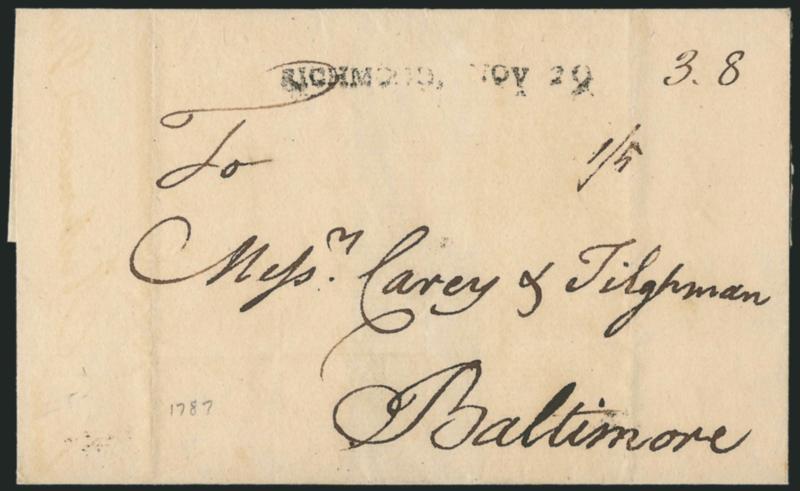 RICHMOND, NOV 29 3.8
To 1/5
Mess.rs Carey & Tilghman
Baltimore
1787